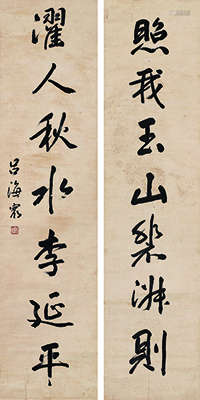 照我玉山乐渊则
濯人秋水李延平
吕海寰